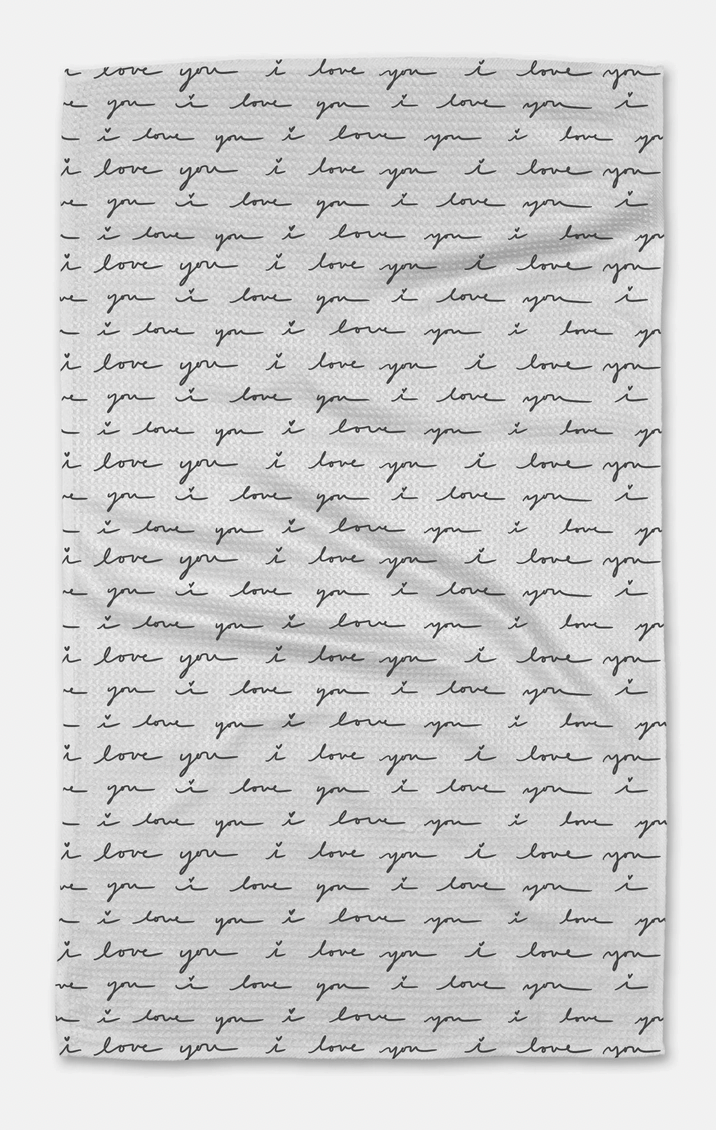 i love you i love you i love you
e you i love you i love you i
i love you i love you i love yo
i love you i love you i love you
e you i love you i love you i
i love you i love you i love yo
i love you i love you i love you
e you i love you i love you i
i love you i love you i love yo
i love you i love you i love you
e you i love you i love you i
i love you i love you i love yo
i love you i love you i love you
e you i love you i love you i
i love you i love you i love yo
i love you i love you i love you
e you i love you i love you i
i love you i love you i love yo
i love you i love you i love you
e you i love you i love you i
i love you i love you i love you
i love you i love you i love you
e you i love you i love you i
i love you i love you i love you
i love you i love you i love you
e you i love you i love you i
i love you i love you i love you
i love you i love you i love you
e you i love you i love you i
i love you i love you i love yo
i love you i love you i love you